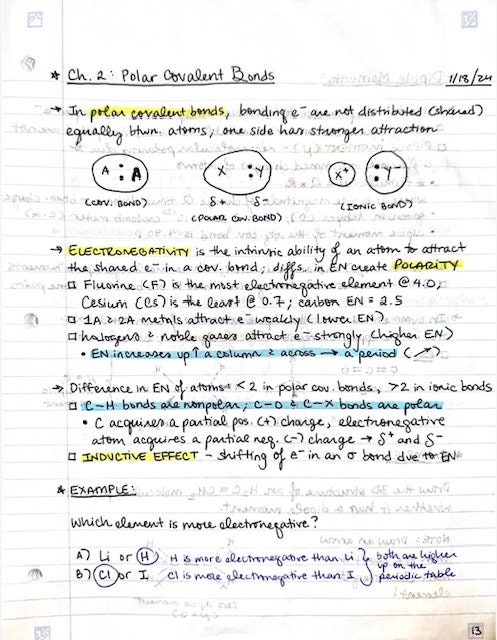 * Ch. 2: Polar Covalent Bonds
1/18/24
→ In polar covalent bonds, bonding e⁻ are not distributed (shared)
equally btwn. atoms; one side has stronger attraction
A : A
X : Y
X⁺ : Y⁻
(COV. BOND)
δ+ δ-
(POLAR COV. BOND)
(IONIC BOND)
→ ELECTRONEGATIVITY is the intrinsic ability of an atom to attract
the shared e⁻ in a cov. bond; diffs. in EN create POLARITY
□ Fluorine (F) is the most electronegative element @ 4.0;
Cesium (Cs) is the least @ 0.7; carbon EN = 2.5
□ 1A & 2A metals attract e⁻ weakly (lower EN)
□ halogens & noble gases attract e⁻ strongly (higher EN)
• EN increases up ↑ a column & across → a period (↗)
→ Difference in EN of atoms = <2 in polar cov. bonds, >2 in ionic bonds
□ C-H bonds are nonpolar; C-O & C-X bonds are polar
• C acquires a partial pos. (+) charge, electronegative
atom acquires a partial neg. (-) charge → δ⁺ and δ⁻
□ INDUCTIVE EFFECT - shifting of e⁻ in an σ bond due to EN
* EXAMPLE:
Which element is more electronegative?
A) Li or H H is more electronegative than Li } both are higher
up on the
B) Cl or I Cl is more electronegative than I periodic table
13